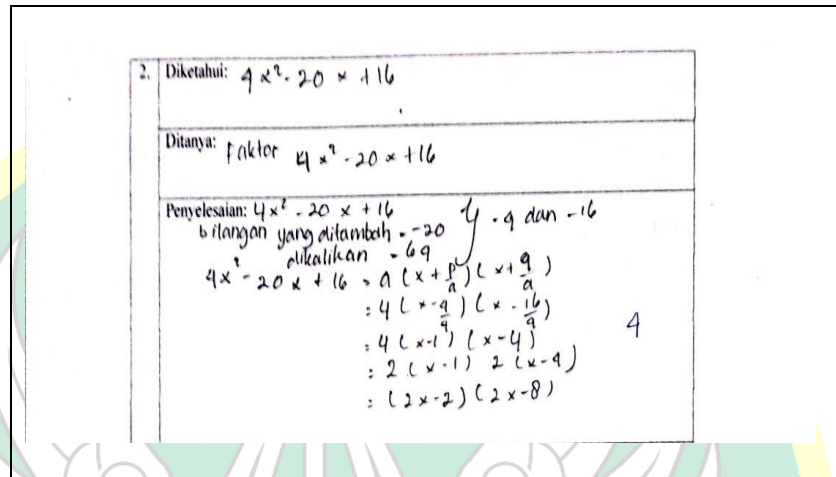 2. Diketahui: 4x² - 20x + 16
Ditanya: Faktor 4x² - 20x + 16
Penyelesaian: 4x² - 20x + 16
bilangan yang ditambah = -20 } -4 dan -16
dikalikan = 64
4x² - 20x + 16 = a (x + p/a) (x + q/a)
= 4 (x - 4/4) (x - 16/4)
= 4 (x-1) (x-4)
= 2 (x-1) 2 (x-4)
= (2x-2) (2x-8)
4